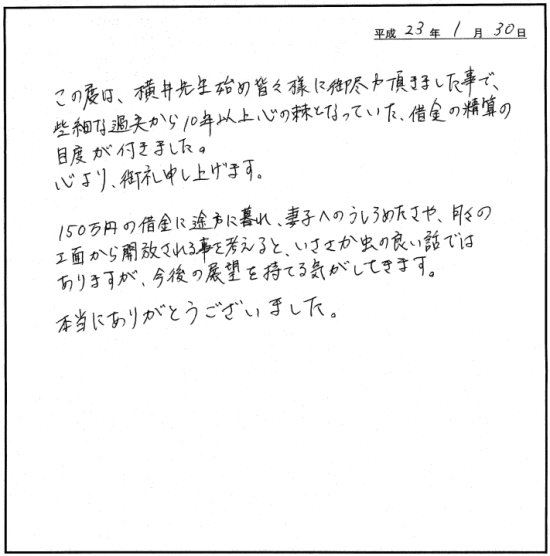 平成 23 年 1 月 30 日
この度は、横井先生始め皆々様に御尽力頂きました事で、
些細な過失から10年以上心の棘となっていた、借金の精算の
目度が付きました。
心より、御礼申し上げます。
150万円の借金に途方に暮れ、妻子へのうしろめたさや、月々の
工面から開放される事を考えると、いささか虫の良い話では
ありますが、今後の展望を持てる気がしてきます。
本当にありがとうございました。